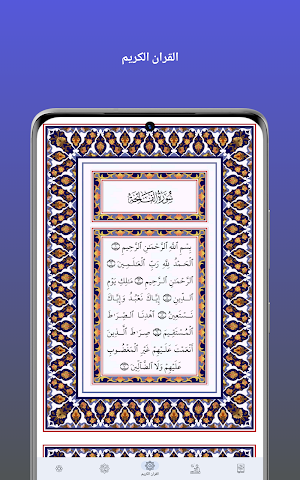 القران الكريم
سُورَةُ الفَاتِحَةِ
بِسْمِ ٱللَّهِ ٱلرَّحْمَٰنِ ٱلرَّحِيمِ ۝
ٱلْحَمْدُ لِلَّهِ رَبِّ ٱلْعَٰلَمِينَ ۝
ٱلرَّحْمَٰنِ ٱلرَّحِيمِ ۝ مَٰلِكِ يَوْمِ
ٱلدِّينِ ۝ إِيَّاكَ نَعْبُدُ وَإِيَّاكَ
نَسْتَعِينُ ۝ ٱهْدِنَا ٱلصِّرَٰطَ
ٱلْمُسْتَقِيمَ ۝ صِرَٰطَ ٱلَّذِينَ
أَنْعَمْتَ عَلَيْهِمْ غَيْرِ ٱلْمَغْضُوبِ
عَلَيْهِمْ وَلَا ٱلضَّآلِّينَ ۝
القران الكريم